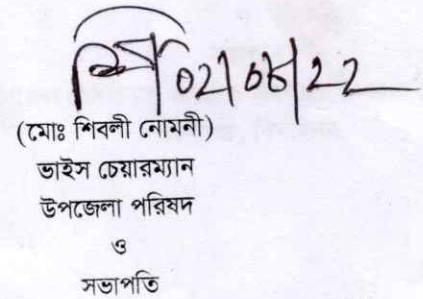 02/08/22
(মোঃ শিবলী নোমনী)
ভাইস চেয়ারম্যান
উপজেলা পরিষদ
ও
সভাপতি